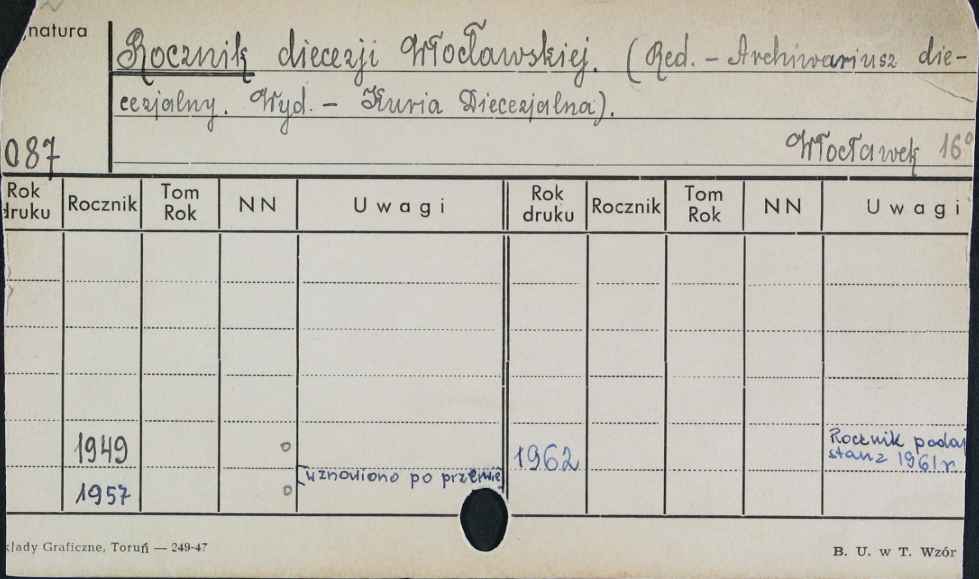 natura
Rocznik diecezji Włocławskiej. (Red. - Archiwariusz die-
cezjalny. Wyd. - Kuria Diecezjalna).
087
Włocławek 16°
Rok druku Rocznik Tom Rok NN Uwagi Rok druku Rocznik Tom Rok NN Uwagi
1949 o 1962 Rocznik podaj
stan z 1961 r
[uznowiono po przerwie]
1957 o
kłady Graficzne, Toruń — 249-47
B. U. w T. Wzór